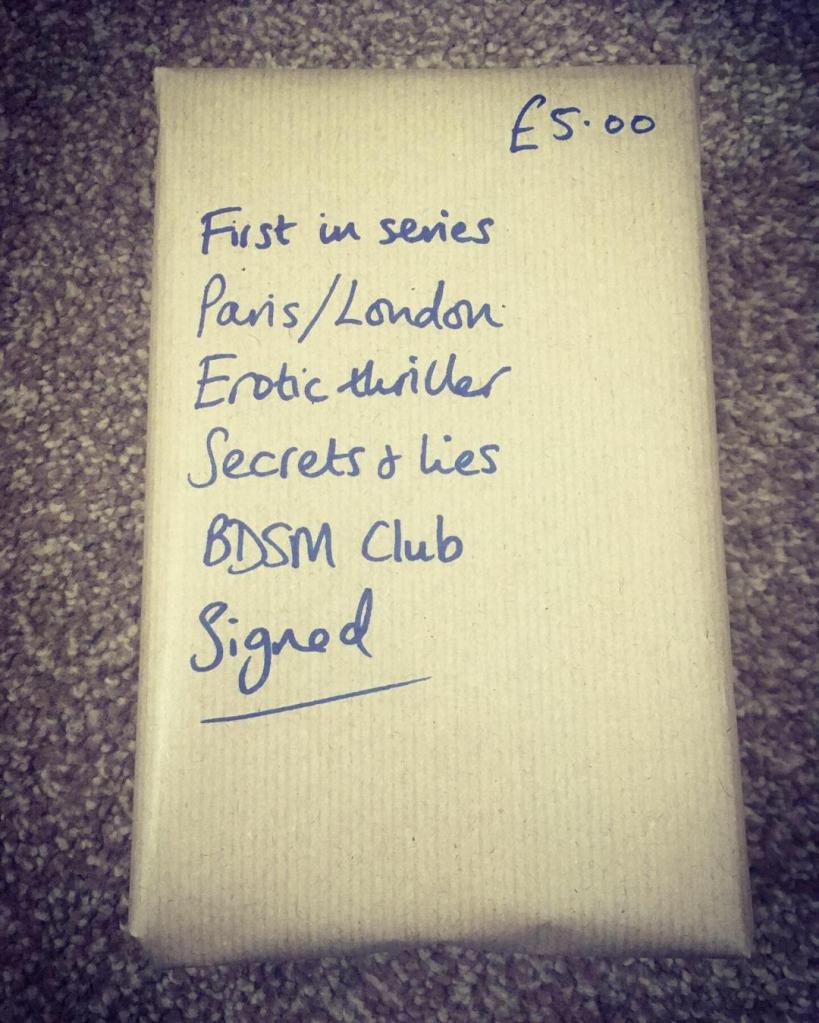 £5.00
First in series
Paris/London
Erotic thriller
Secrets & lies
BDSM Club
Signed